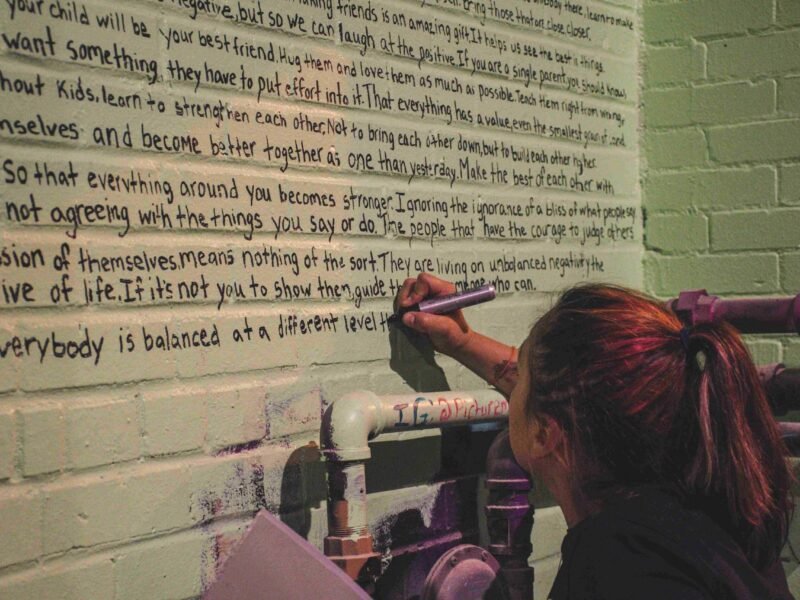 negative, but so we can laugh at the positive. If you are a single parent, you should know,
making friends is an amazing gift. It helps us see the best in things.
your child will be your best friend. Hug them and love them as much as possible. Teach them right from wrong,
want something, they have to put effort into it. That everything has a value, even the smallest grain of and
hout Kids, learn to strengthen each other, Not to bring each other down, but to build each other higher.
mselves and become better together as one than yesterday. Make the best of each other with
So that everything around you becomes stronger. Ignoring the ignorance of a bliss of what people say
not agreeing with the things you say or do. The people that have the courage to judge others
sion of themselves, means nothing of the sort. They are living on unbalanced negativity the
ive of life. If it's not you to show them, guide who can.
verybody is balanced at a different level th
IG: @Picture